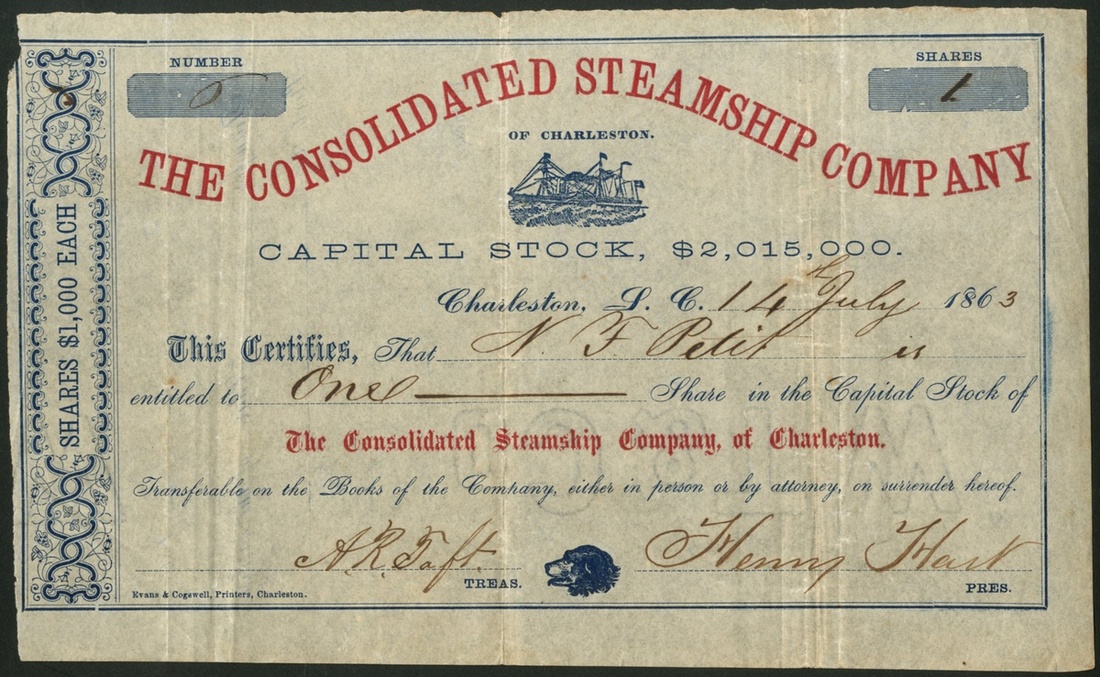 NUMBER
SHARES
1
THE CONSOLIDATED STEAMSHIP COMPANY
OF CHARLESTON.
CAPITAL STOCK, $2,015,000.
Charleston, S. C. 14th July 1863
This Certifies, That N. F. Petit is
entitled to One Share in the Capital Stock of
The Consolidated Steamship Company, of Charleston.
Transferable on the Books of the Company, either in person or by attorney, on surrender hereof.
A. R. Taft. TREAS.
Henry Hart PRES.
Evans & Cogswell, Printers, Charleston.
SHARES $1,000 EACH